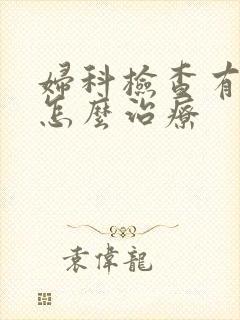 婦科檢查有
怎麼治療
袁偉龍